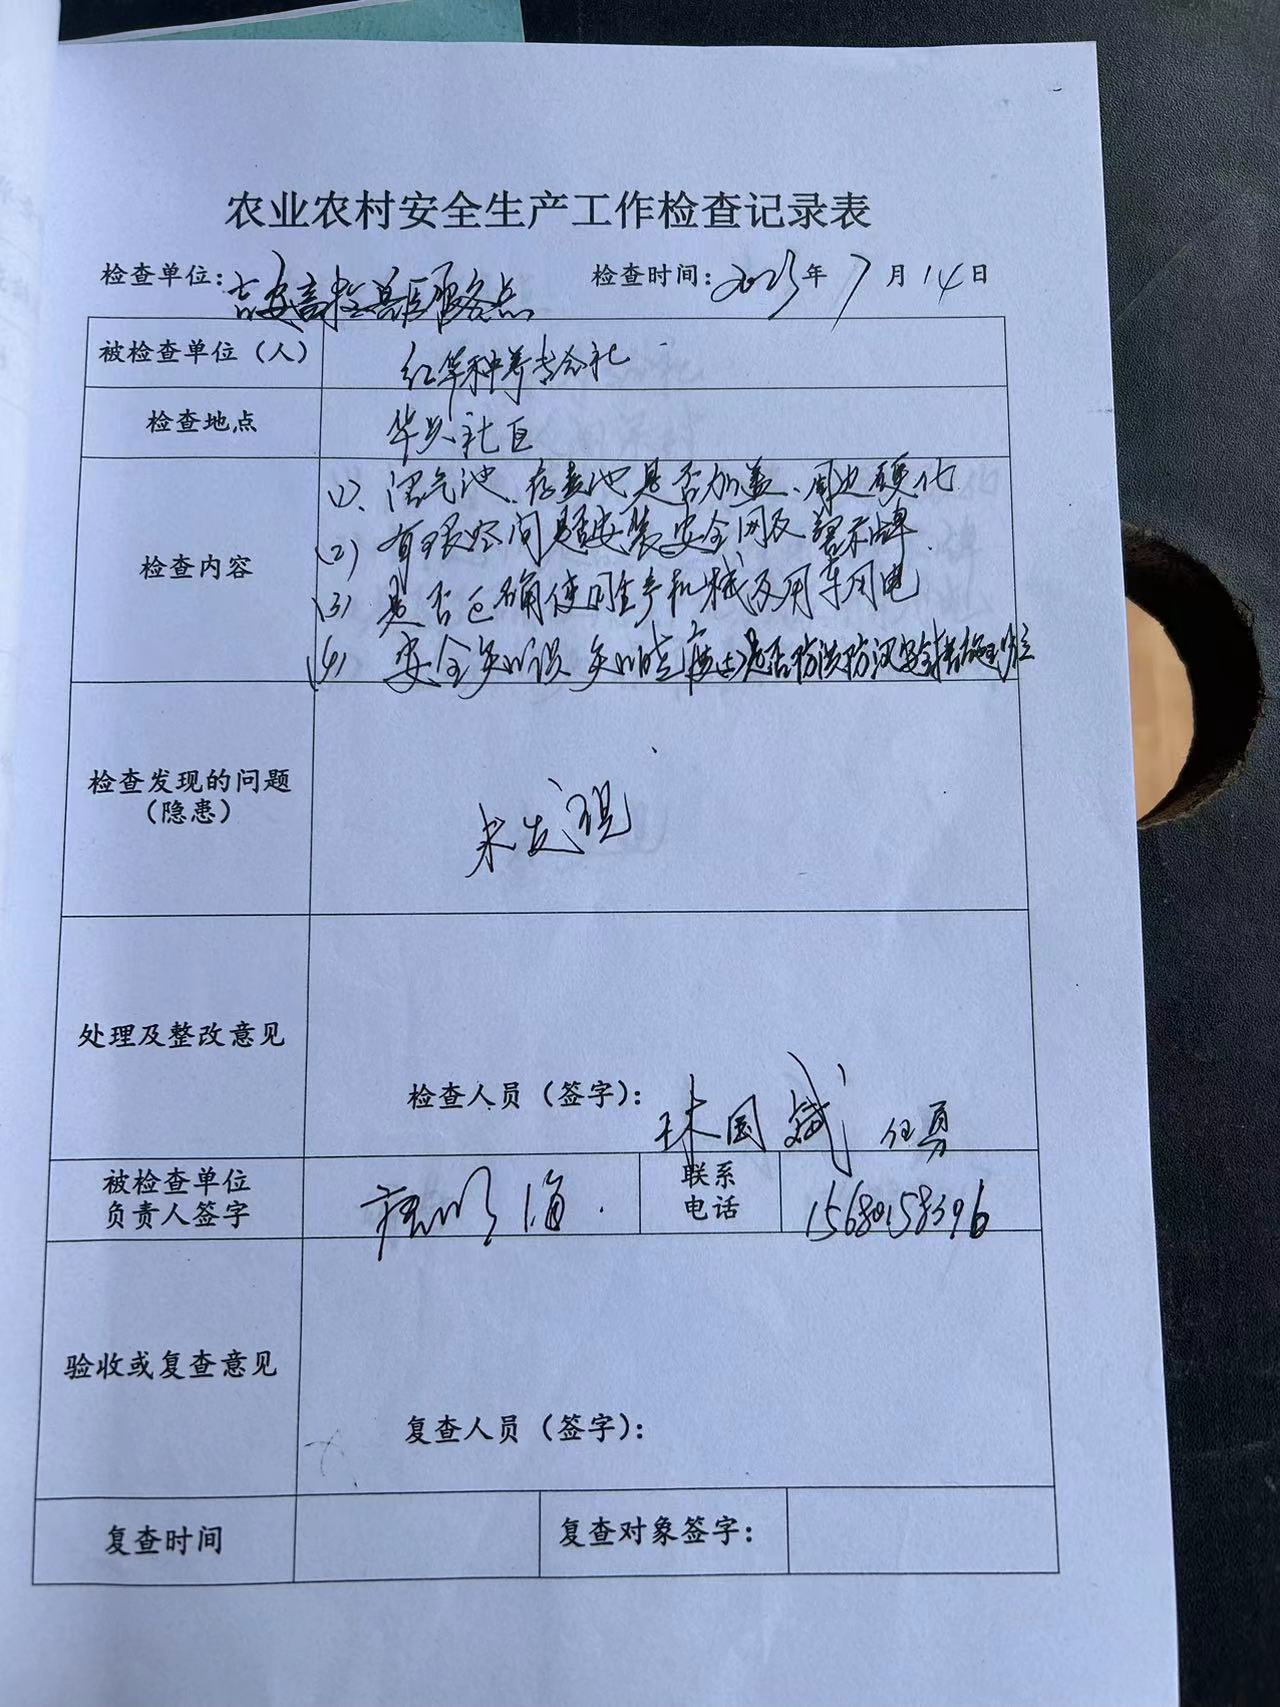 农业农村安全生产工作检查记录表
检查单位： 检查时间：2023年7月14日
被检查单位（人） 红华种养专合社
检查地点 华兴社区
检查内容
(1)、沼气池、存粪池是否加盖、周边硬化
(2) 有限空间是否安装安全网及警示牌
(3) 是否正确使用生产机械及用车用电
(4) 安全知识 是否防洪防汛安全措施到位
检查发现的问题
（隐患）
未发现
处理及整改意见
检查人员（签字）： 林国斌 任勇
被检查单位
负责人签字
联系
电话
15680158396
验收或复查意见
复查人员（签字）：
复查时间 复查对象签字：